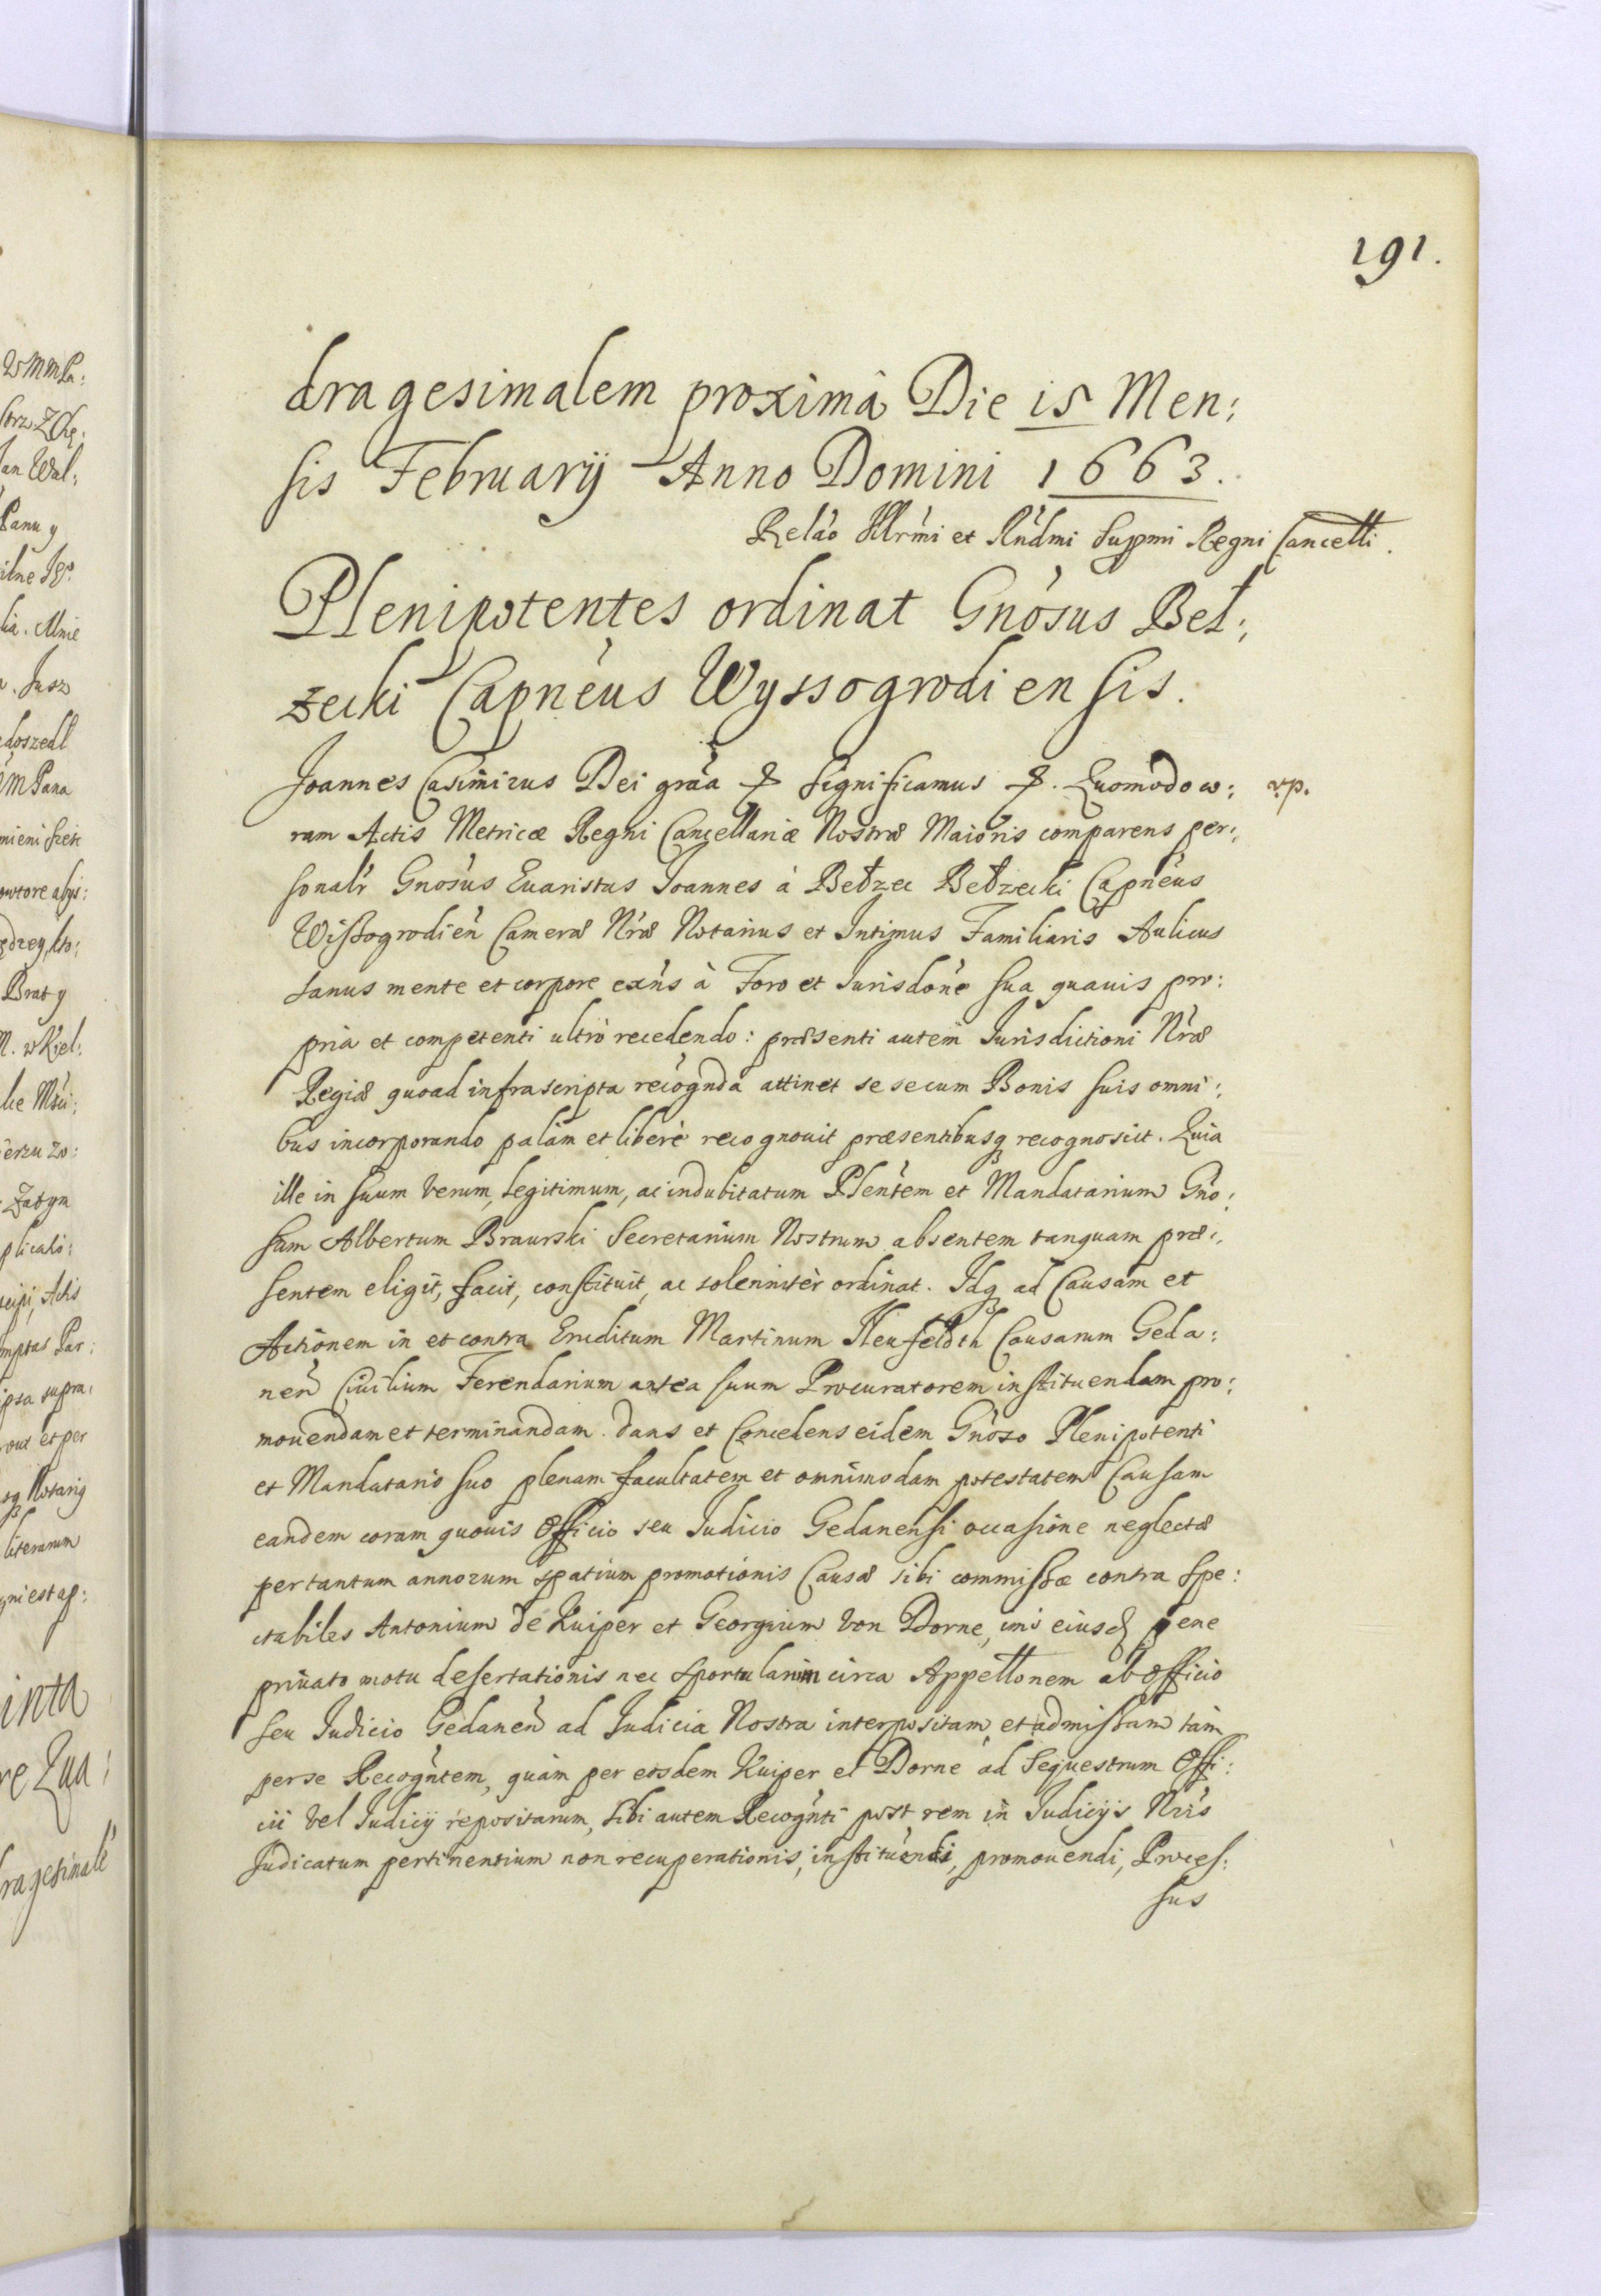 191.
dragesimalem proximâ Die 15 Men:
sis Februarij Anno Domini 1663.
Relào Illrmi et Rndmi Suppmi Regni Cancelli.
Plenipotentes ordinat Gnosus Beł:
zecki Capneus Wyssogrodiensis.
Joannes Casimirus Dei gràa & significamus &. Quomodo co: rp.
ram Actis Metricæ Regni Cancellariæ Nostræ Maioris comparens per:
sonalr Gnosus Euaristus Joannes à Bełzec Bełzecki Capneus
Wissogrodien Cameræ Nræ Notarius et Intimus Familiaris Aulicus
sanus mente et corpore exns à Foro et Jurisdone sua quauis pro:
pria et competenti ultrò recedendo: præsenti autem Jurisdictioni Nræ
Regiæ quoad infrascripta recognda attinet se secum Bonis suis omni:
bus incorporando palàm et liberè recognouit præsentibusq recognoscit. Quia
ille in suum verum, legitimum, ac indubitatum Plentem et Mandatarium Gno:
sum Albertum Braurski Secretarium Nostrum absentem tanquam præ:
sentem eligit, facit, constituit, ac solenniter ordinat. Idq ad Causam et
Actionem in et contra Eruditum Martinum Neufeldth Causarum Geda:
nen Ciuilium Ferendarium antea suum Procuratorem instituendam pro:
mouendam et terminandam. dans et Concedens eidem Gnoso Plenipotenti
et Mandatario suo plenam facultatem et omnimodam potestatem Causam
eandem coram quouis Officio seu Judicio Gedanensi occasione neglectæ
per tantum annorum spatium promotionis Causæ sibi commissæ contra Spe:
ctabiles Antonium de Kuiper et Georgium von Dorne, eiusd pene
priuato motu desertationis nec sportularum circa Appellonem ab Officio
seu Judicio Gedanen ad Judicia Nostra interpositam et admissam tàm
per se Recogntem, quàm per eosdem Kuiper et Dorne ad Sequestrum Offi:
cii vel Judicij repositarum, sibi autem Recognti post rem in Judicijs Nris
Judicatum pertinentium non recuperationis, instituendi, promouendi, Proces:
sus